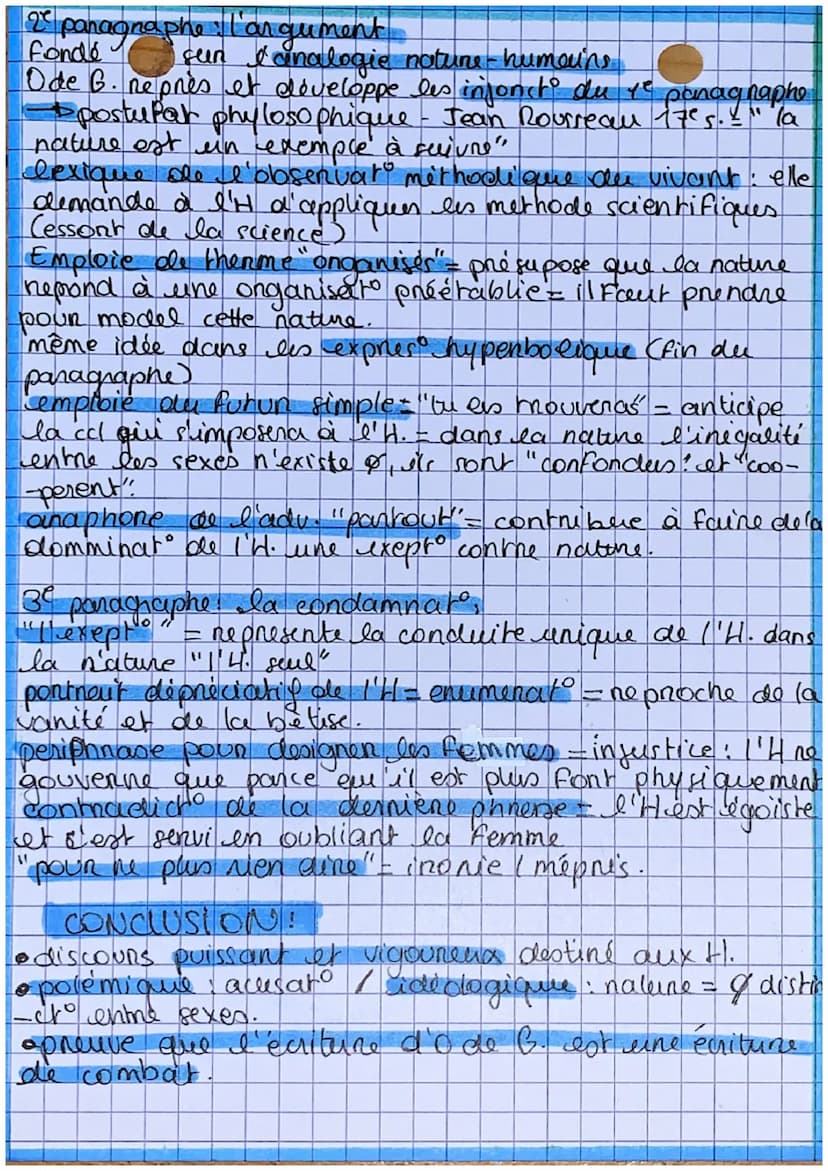 2e paragraphe : l'argument
fondé sur l'analogie nature-humains
O de G. reprès et développe les injonct° du 1e paragraphe
→ postulat phylosophique - Jean Rousseau 17e s. = "la
nature est un exemple à suivre"
lexique de l'observat° méthodique du vivant : elle
demande à l'H d'appliquer les methode scientifiques
(essort de la science)
Emploie de therme "organisés" = présupose que la nature
repond à une organisat° préétablie = il faut prendre
pour model cette nature.
même idée dans les expres° hyperbolique (fin du
paragraphe)
emploie du futur simple = "tu les trouveras" = anticipe
la ccl qui s'imposera à l'H. = dans la nature l'inégalité
entre les sexes n'existe ∅, ils sont "confondus" et "coo-
-perent".
anaphore de l'adv. "partout" = contribue à faire de la
domminat° de l'H. une exept° contre nature.
3e paragraphe : la condamnat°,
"l'exept°" = represente la conduite unique de l'H. dans
la n'ature "l'H. seul"
portrait dépréciatif de l'H = enumerat° = reproche de la
vanité et de la bêtise.
periphrase pour designer les femmes = injustice : l'H ne
gouverne que parce qu'il est plus fort physiquement
contradict° de la dernière phrase = l'H est égoïste
et s'est servi en oubliant la femme
"pour ne plus rien dire" = ironie / mépris.
CONCLUSION :
• discours puissant et vigoureux destiné aux H.
• polémique : acusat° / idéologique : nature = ∅ distin
-ct° entre sexes.
• preuve que l'écriture d'O de G. est une écriture
de combat.